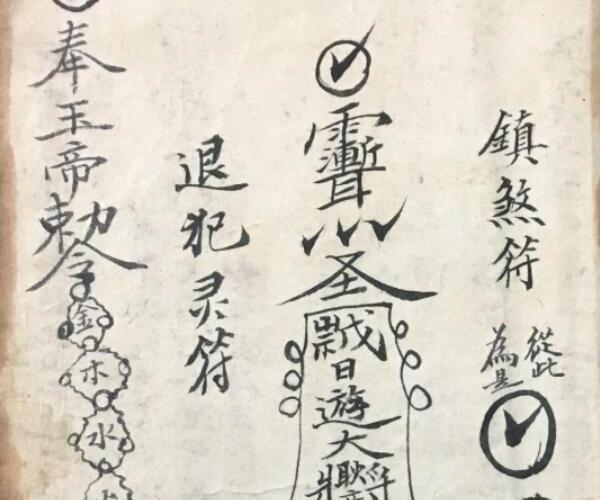 鎮煞符
從此
為是
圣
日遊大
退犯灵符
奉玉帝勅令
金木水